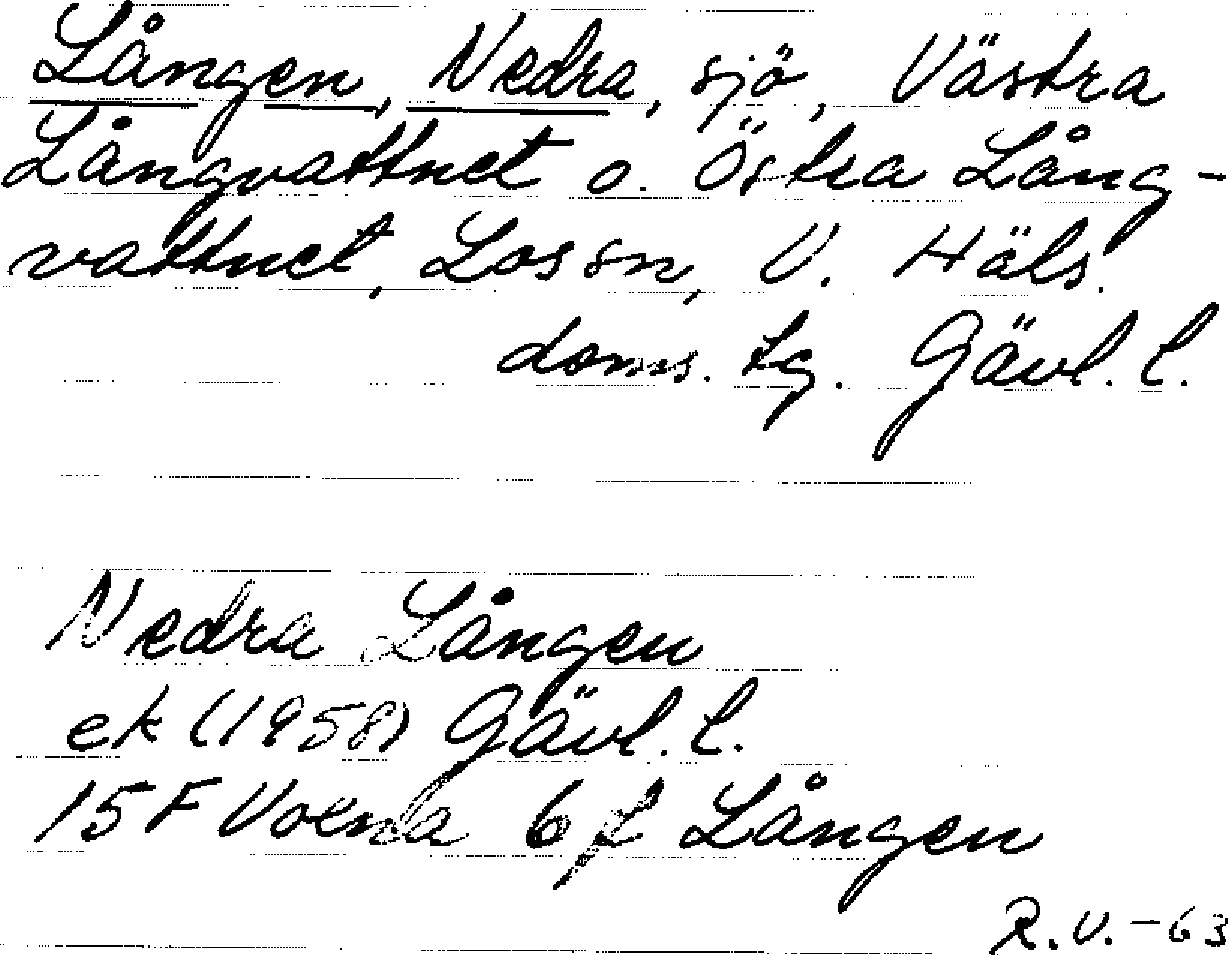 Lången, Nedra, sjö, Västra
Långvattnet o. Östra Lång-
vattnet, Los sn, V. Häls.
doms. tg. Gävl. l.
Nedra Lången
ek (1958) Gävl. l.
15F Voxna 6f Lången
R.V.-63